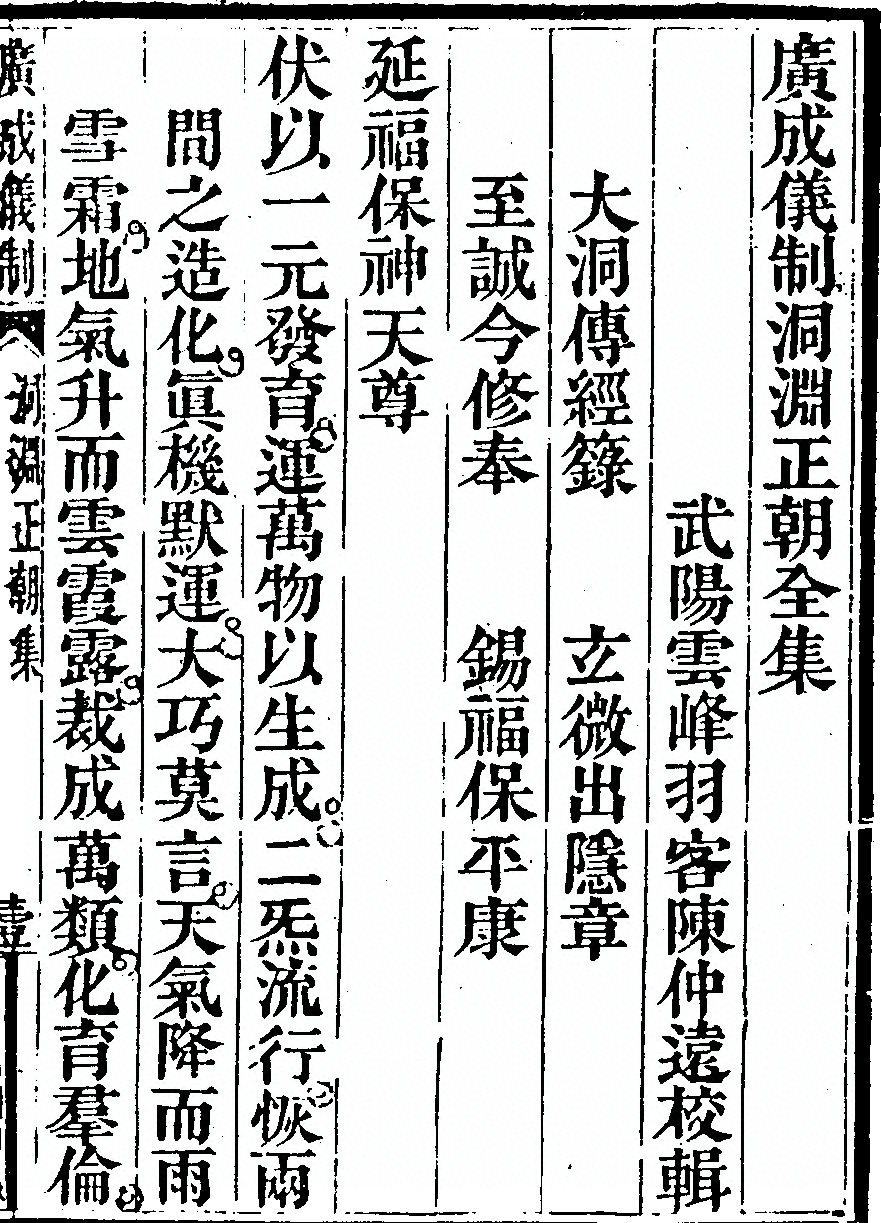 廣成儀制洞淵正朝全集
武陽雲峰羽客陳仲遠校輯
大洞傳經籙　玄微出隱章
至誠今修奉　錫福保平康
延福保神天尊
伏以一元發育運萬物以生成二炁流行恢兩
間之造化眞機默運大巧莫言天氣降而雨
雪霜地氣升而雲霞露裁成萬類化育羣倫
廣成儀制　洞淵正朝集　壹